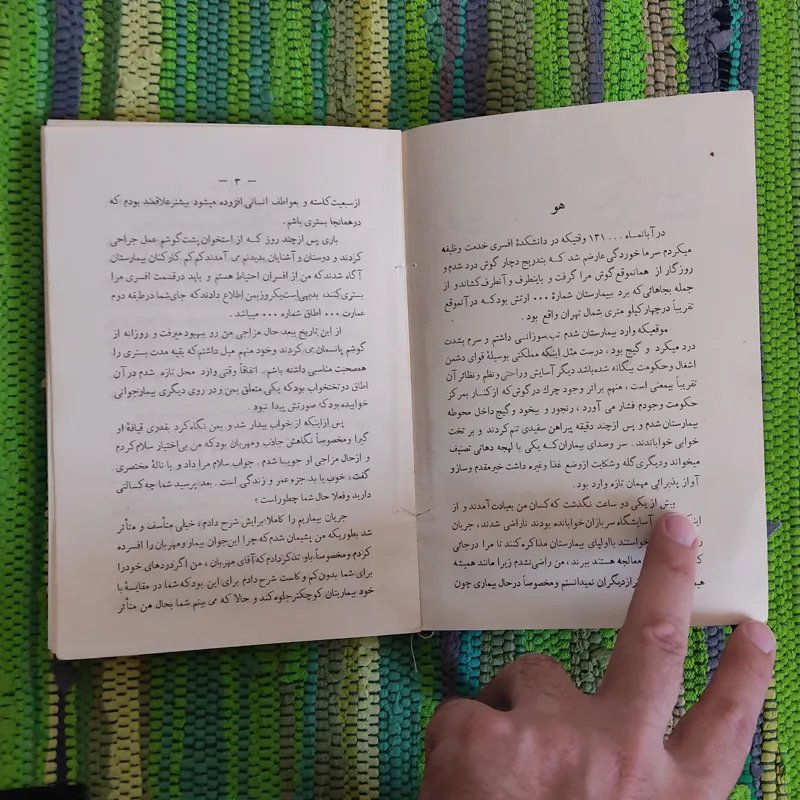 هو
در آبانماه ۱۳۱۰۰۰ وقتیکه در دانشکدهٔ افسری خدمت وظیفه
میکردم سرما خوردگی عارضم شد که بتدریج دچار گوش درد شدم و
روزگار از همانموقع گوش مرا گرفت و باینطرف و آنطرف کشاند و از
جمله بجاهائی که برد بیمارستان شمارهٔ ۰۰۰ ارتش بود که در آنموقع
تقریباً در چهار کیلو متری شمال تهران واقع بود.
موقعیکه وارد بیمارستان شدم تب سوزانی داشتم و سرم بشدت
درد میکرد و گیج بود، درست مثل اینکه مملکتی بوسیلهٔ قوای دشمن
اشغال وحکومت بیگانه شده باشد دیگر آسایش وراحتی ونظم ونظائر آن
تقریباً بیمعنی است، منهم براثر وجود چرك در گوش که از کنار بمرکز
حکومت وجودم فشار می آورد، رنجور و بیخود وگیج داخل محوطه
بیمارستان شدم و پس ازچند دقیقه پیراهن سفیدی تنم کردند و بر تخت
خوابی خواباندند. سر وصدای بیماران که یکی با لهجه دهاتی تصنیف
میخواند ودیگری گله و شکایت ازوضع غذا وغیره داشت خیرمقدم وسازو
آواز پذیرائی مهمان تازه وارد بود.
بیش از یکی دو ساعت نگذشت که کسان من بعیادت آمدند و از
آسایشگاه سربازان خوابانده بودند ناراضی شدند، جریان
خواستند بااولیای بیمارستان مذاکره کنند تا مرا درجائی
معالجه هستند ببرند، من راضی نشدم زیرا مانند همیشه
از دیگران نمیدانستم ومخصوصاً درحال بیماری چون
— ۳ —
از سبعیت کاسته و بعواطف انسانی افزوده میشود بیشتر علاقمند بودم که
درهمانجا بستری باشم.
باری پس ازچند روز که از استخوان پشت گوشم عمل جراحی
کردند و دوستان و آشنایان بدیدنم می آمدند کم کم کارکنان بیمارستان
آگاه شدند که من از افسران احتیاط هستم و باید درقسمت افسری مرا
بستری کنند، بدیهی است یکروز بمن اطلاع دادند که جای شما درطبقه دوم
عمارت ۰۰۰ اطاق شماره ۰۰۰ میباشد.
از این تاریخ ببعد حال مزاجی من رو ببهبود میرفت و روزانه از
گوشم پانسمان می کردند وخود منهم میل داشتم که بقیه مدت بستری را
همصحبت مناسبی داشته باشم. اتفاقاً وقتی وارد محل تازه شدم در آن
اطاق دوتختخواب بود که یکی متعلق بمن ودر روی دیگری بیمار جوانی
خوابیده بود که سورتش پیدا نبود.
پس ازاینکه از خواب بیدار شد و بمن نگاه کرد بقدری قیافهٔ او
گیرا و مخصوصاً نگاهش جاذب و مهربان بود که من بی اختیار سلام کردم
و ازحال مزاجی او جویا شدم. جواب سلام مرا داد و با نالهٔ مختصری
گفت: خوب یا بد جزء عمر و زندگی است. بعد پرسید شما چه کسالتی
دارید وفعلا حال شما چطور است؟
جریان بیماریم را کاملا برایش شرح دادم، خیلی متأسف و متأثر
شد بطوریکه من پشیمان شدم که چرا این جوان بیمار ومهربان را افسرده
کردم ومخصوصاً باو تذکر دادم که آقای مهربان، من اگر دردهای خودرا
برای شما بدون کم و کاست شرح دادم برای این بود که شما در مقایسهٔ با
خود بیماریتان کوچکتر جلوه کند و حالا که می بینم شما بحال من متأثر